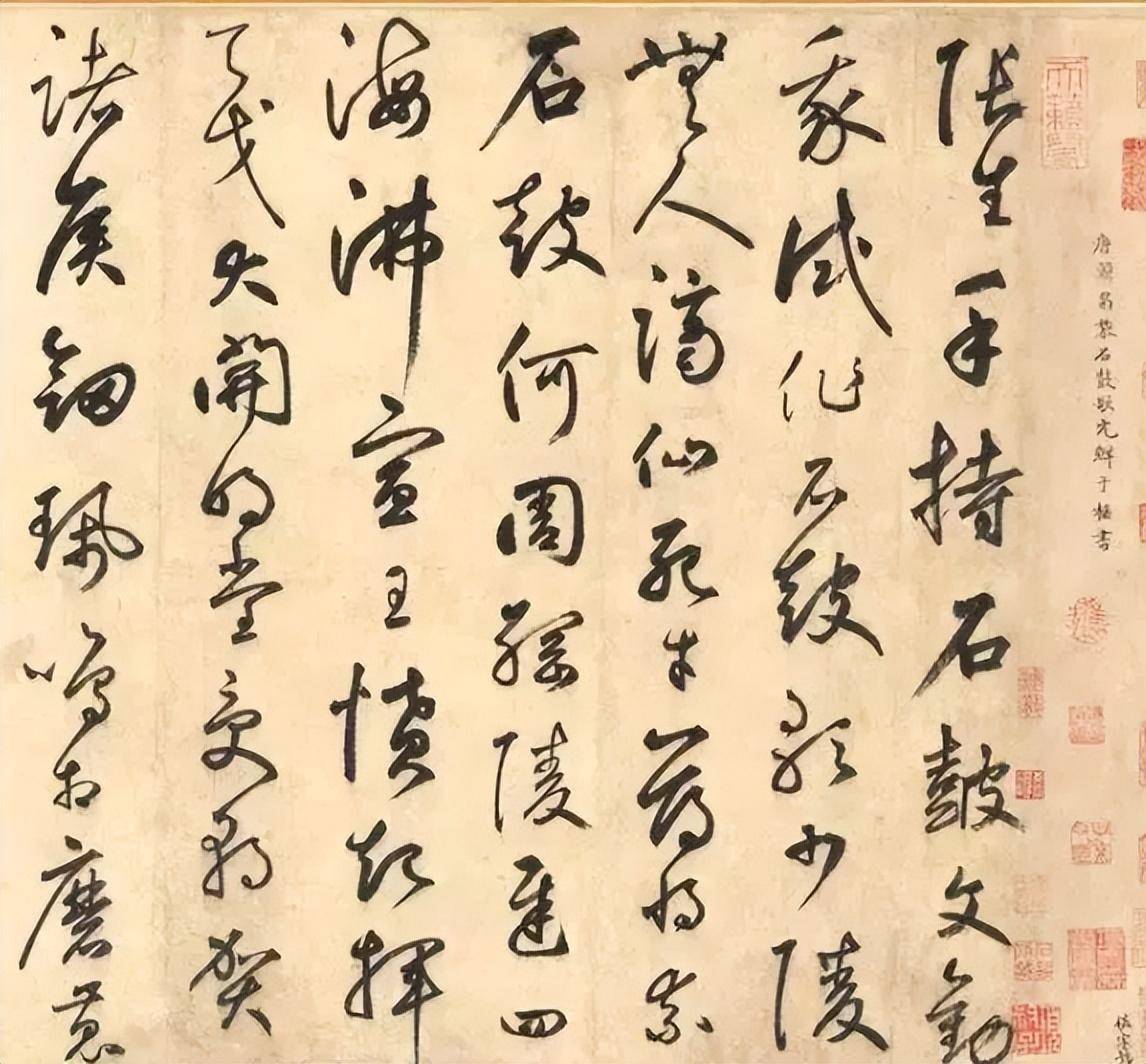 天籟閣
唐韓昌黎石鼓歌元鮮于樞書
張生手持石鼓文勸
我試作石鼓歌少陵
無人謫仙死才薄將奈
石鼓何周綱陵遲四
海沸宣王憤起揮
天戈大開明堂受朝賀
諸侯劒珮鳴相磨蒐